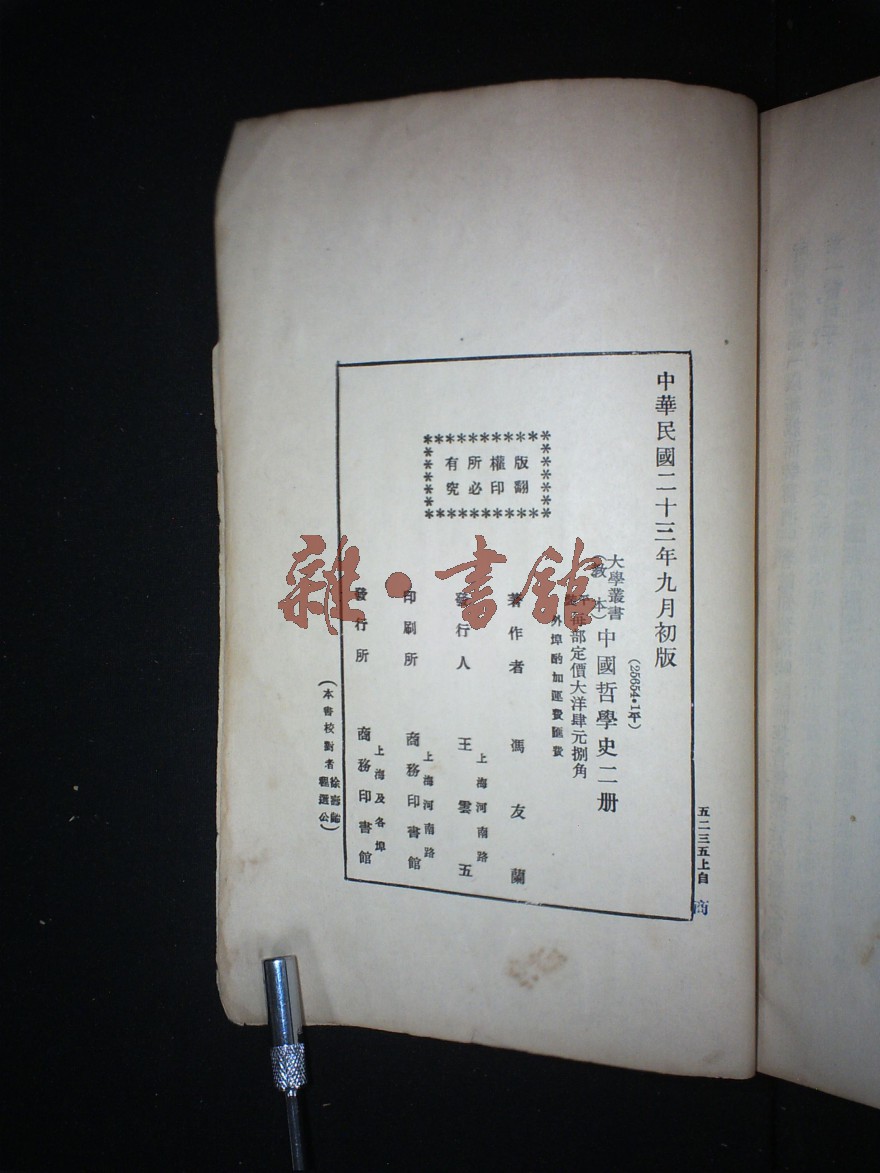 中華民國二十三年九月初版
五二三五上自
商
(25654·1平)
大學叢書
(教本)中國哲學史二册
每部定價大洋肆元捌角
外埠酌加運費匯費
版權所有
翻印必究
著作者 馮友蘭
發行人 王雲五
上海河南路
印刷所 商務印書館
上海河南路
發行所 商務印書館
上海及各埠
(本書校對者
雜·書館